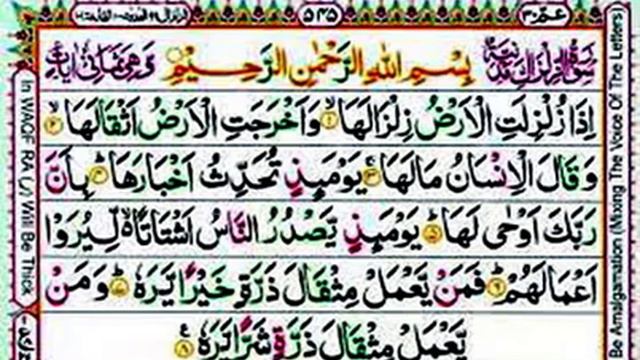 عمّ ٣٠
٥٣٥
سورة الزلزال مدنية بِسْمِ اللهِ الرَّحْمٰنِ الرَّحِيْمِ وهي ثماني ايات
اِذَا زُلْزِلَتِ الْاَرْضُ زِلْزَالَهَا ۙ﴿١﴾ وَاَخْرَجَتِ الْاَرْضُ اَثْقَالَهَا ۙ﴿٢﴾
وَقَالَ الْاِنْسَانُ مَا لَهَا ۚ﴿٣﴾ يَوْمَىِٕذٍ تُحَدِّثُ اَخْبَارَهَا ؕ﴿٤﴾ بِاَنَّ
رَبَّكَ اَوْحٰى لَهَا ؕ﴿٥﴾ يَوْمَىِٕذٍ يَّصْدُرُ النَّاسُ اَشْتَاتًا ۙ۬ لِّيُرَوْا
اَعْمَالَهُمْ ؕ﴿٦﴾ فَمَنْ يَّعْمَلْ مِثْقَالَ ذَرَّةٍ خَيْرًا يَّرَهٗ ؕ﴿٧﴾ وَمَنْ
يَّعْمَلْ مِثْقَالَ ذَرَّةٍ شَرًّا يَّرَهٗ ﴿٨﴾
In WAQF RA (ر) Will Be Thick
Be Amalgamation (Mixing The Voice Of The Letters)